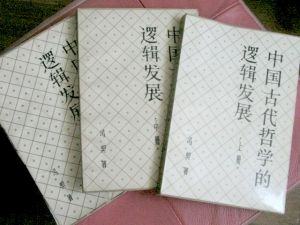 中国
逻辑发展
冯契著
中国
逻辑发展
·中册·
冯契著
中国古代哲学的
逻辑发展
·上册·
冯契著